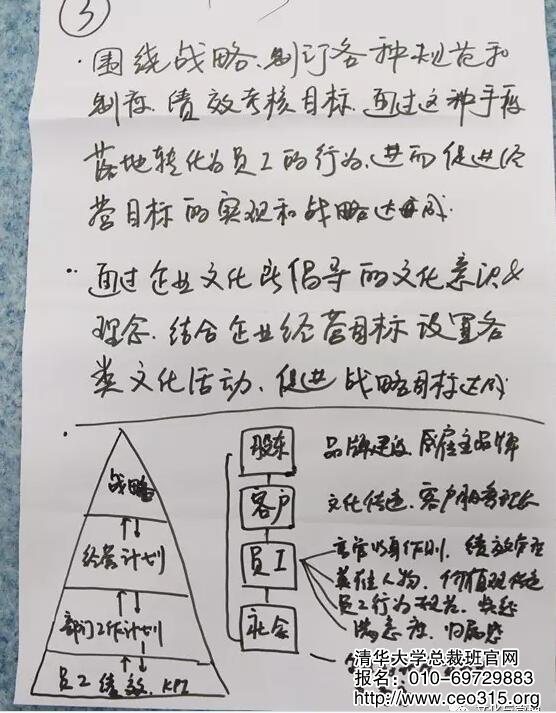 ③
·围绕战略、制订各种规范和
制度、绩效考核目标、通过这种手段
落地转化为员工的行为、进而促进经
营目标的实现和战略达成.
··通过企业文化所倡导的文化意识&
理念、结合企业经营目标设置各
类文化活动、促进战略目标达成
战略
经营计划
部门工作计划
员工绩效、KPI
股东 品牌建设、雇主品牌
客户 文化传递、客户服务
员工 高管以身作则、绩效
人物、价值观传递
员工行为规范
满意度、归属感
社会
清华大学总裁班官网
报名：010-69729883
http://www.ceo315.org